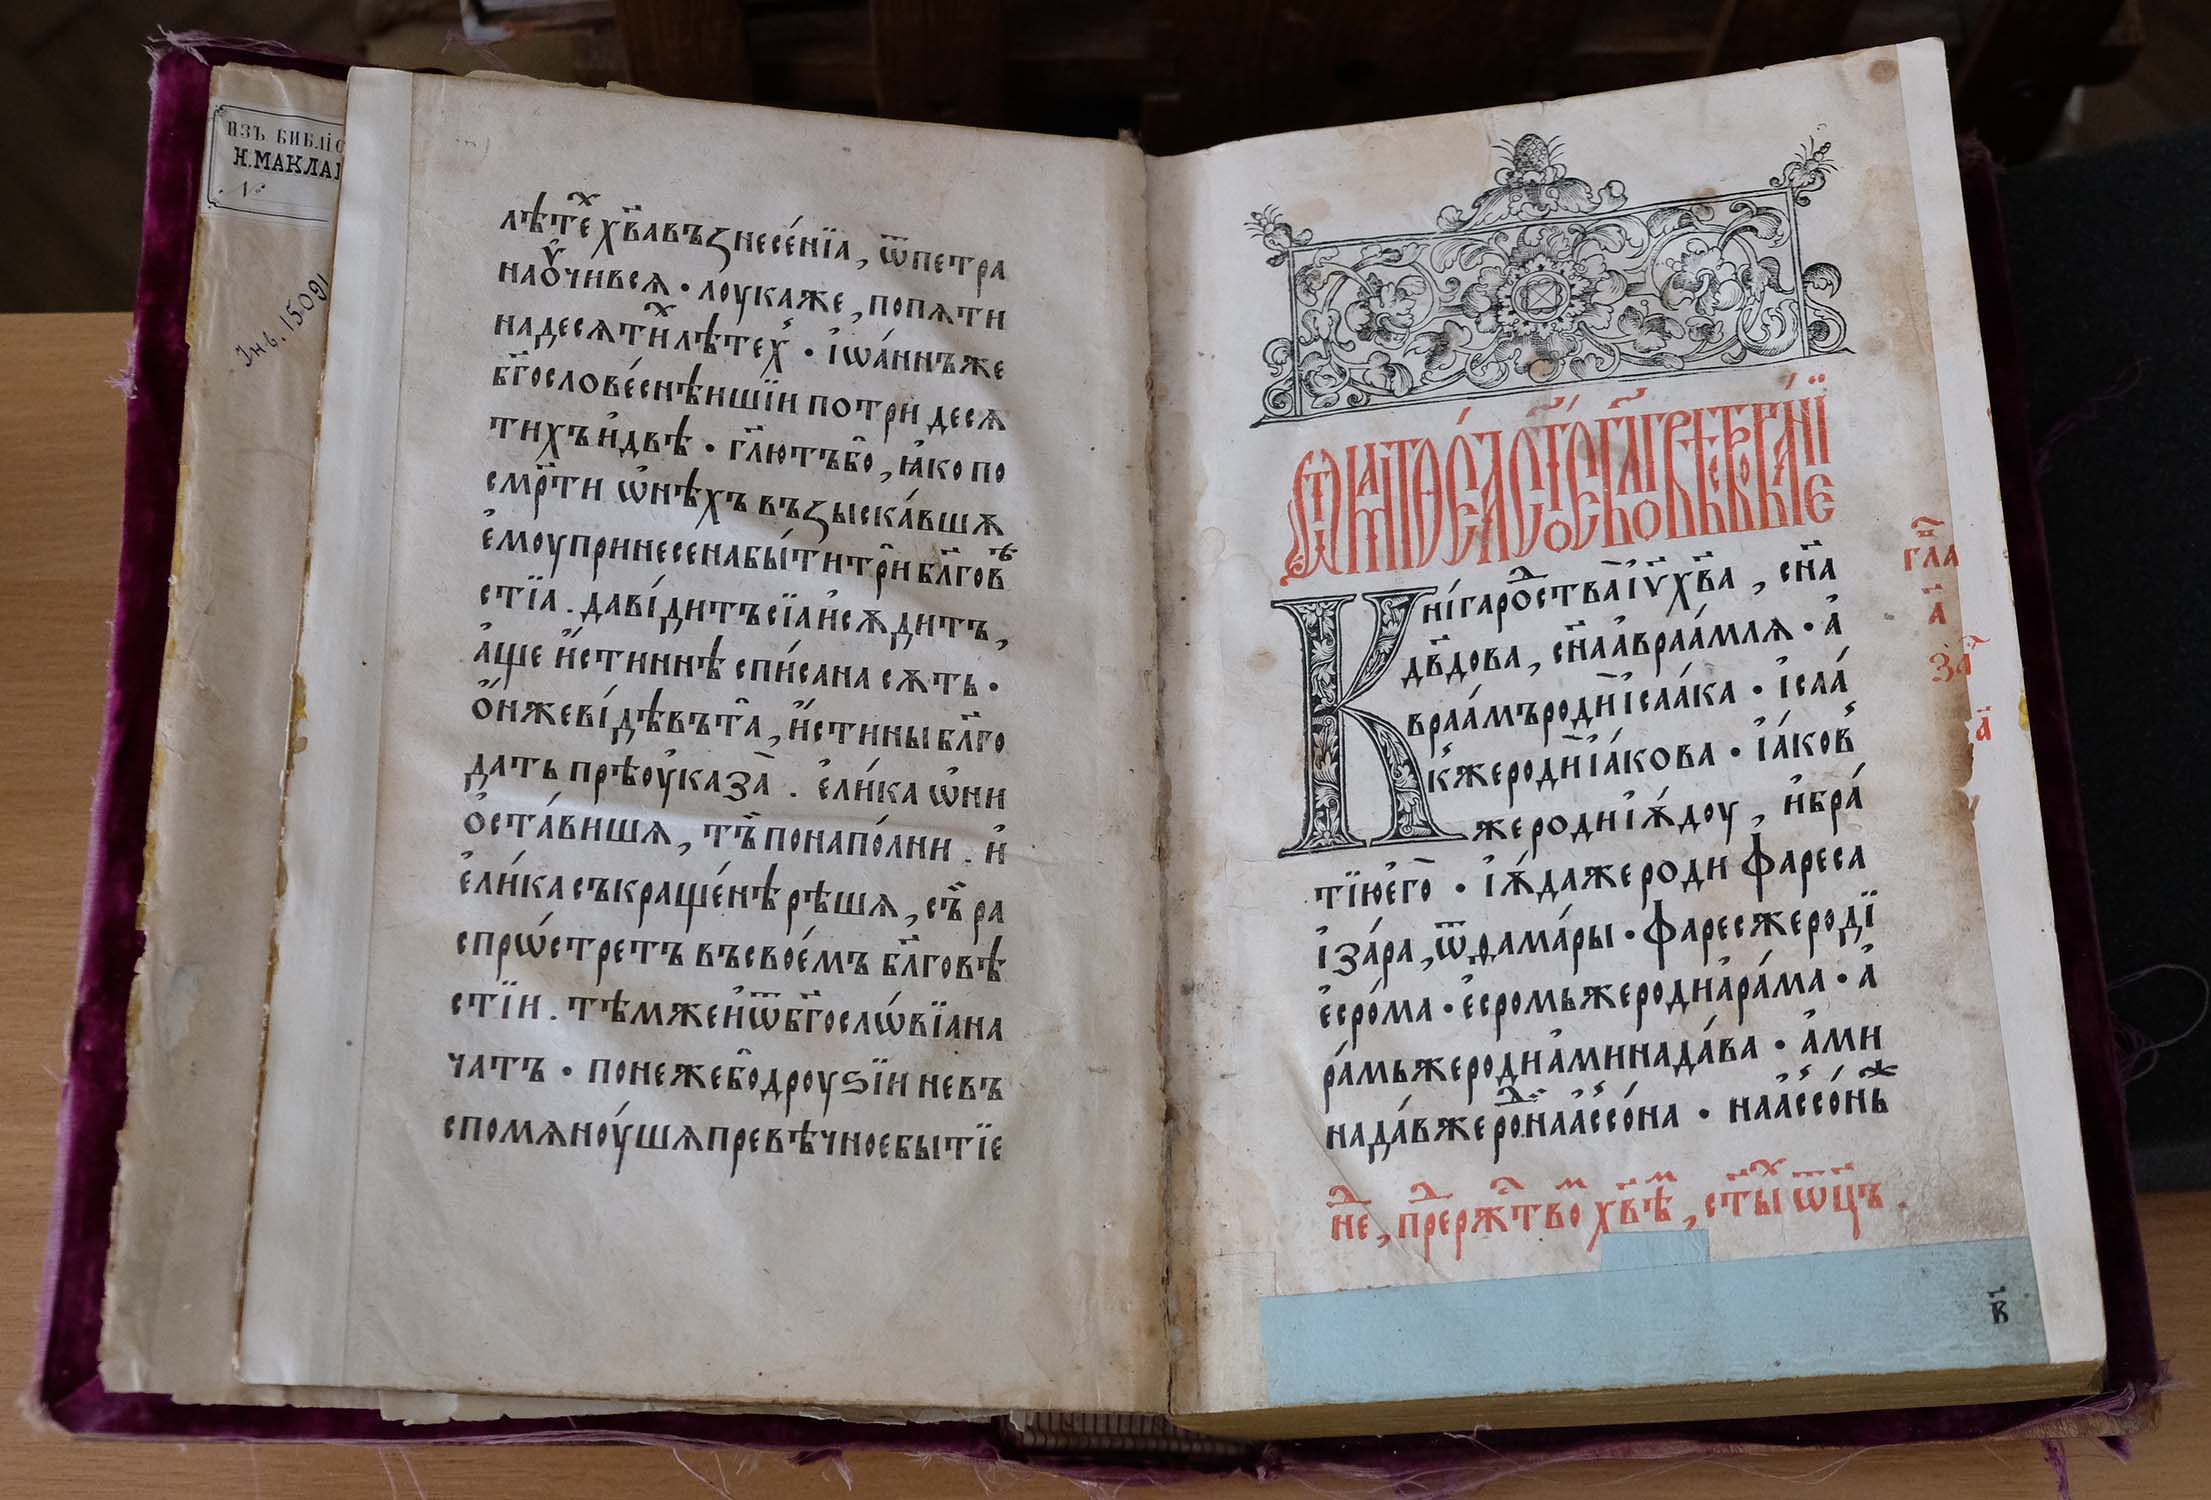 ИЗЪ БИБЛІО
Н. МАКЛА
№
Инв. 15091
лѣтѣⷯ хв҃а възнесе́нїа, ѿ петра
наоу҆чивьсѧ · лоукаже, попѧти
надесѧтиⷯ лѣтеⷯ · і҆ѡа́ннъже
бг҃ослове́снѣишїи потри десѧ
тихъ и҆двѣ · гл҃ютъбо̑, ꙗ҆ко по
смр҃ти ѡ҆нѣхъ възыска́вшѧ
є҆моу принесена бы́ти три̑ бл҃говⷷ
стїа . даві́дитъ сїа и҆сѫдитъ,
а҆ще и҆́стиннѣ спи́сана сѫть ·
Ѻ҆́нжеві́дѣвъ та̑, и҆́стины бл҃го
дать прѣоу҆каза̀ . є҆ли́ка ѡ҆ни
ѻ҆ста́вишѧ, тѣ̀ понапо́лни . и҆
є҆ли́ка съкраще́нѣ рѣшѧ, съ̀ ра
спрѡ́стретъ въсвое́мъ бл҃говѣ
стїи . тѣмже и҆ ѿ бг҃ослѡ́вїа на
чатъ · понежебо̑ дроуѕїи невъ
спомѧноу́шѧ превѣчное бытїе
Ѿ маттѳе́а ст҃ое бл҃говѣствова́нїе
Кни́га роⷣства і҆у҃ хв҃а , сн҃а
дв҃дова, сн҃а а҆враа́млѧ · а҆
враа́мъ роди̏ і҆саа́ка · і҆саа́
кже роди̏ і҆а́кова · і҆а́ков
же роди і҆ѫ́доу, и҆бра́
тїю є҆го̀ · і҆ѫ́да же роди фареса
і҆за́ра, ѿ ѳама́ры · фаресже роди̏
є҆сро́ма · є҆сромьже роди а҆ра́ма · а҆
ра́мьже роди а҆минада́ва · а҆ми
нада́вже роⷣ наассо́на · наассо́нⷤь
гл҃а
а҃
за̑
а҃
неⷣ, преⷣ рⷤтвоⷨ хв҃ѣⷨ, ст҃ыⷯ ѿц҃ъ .
в҃